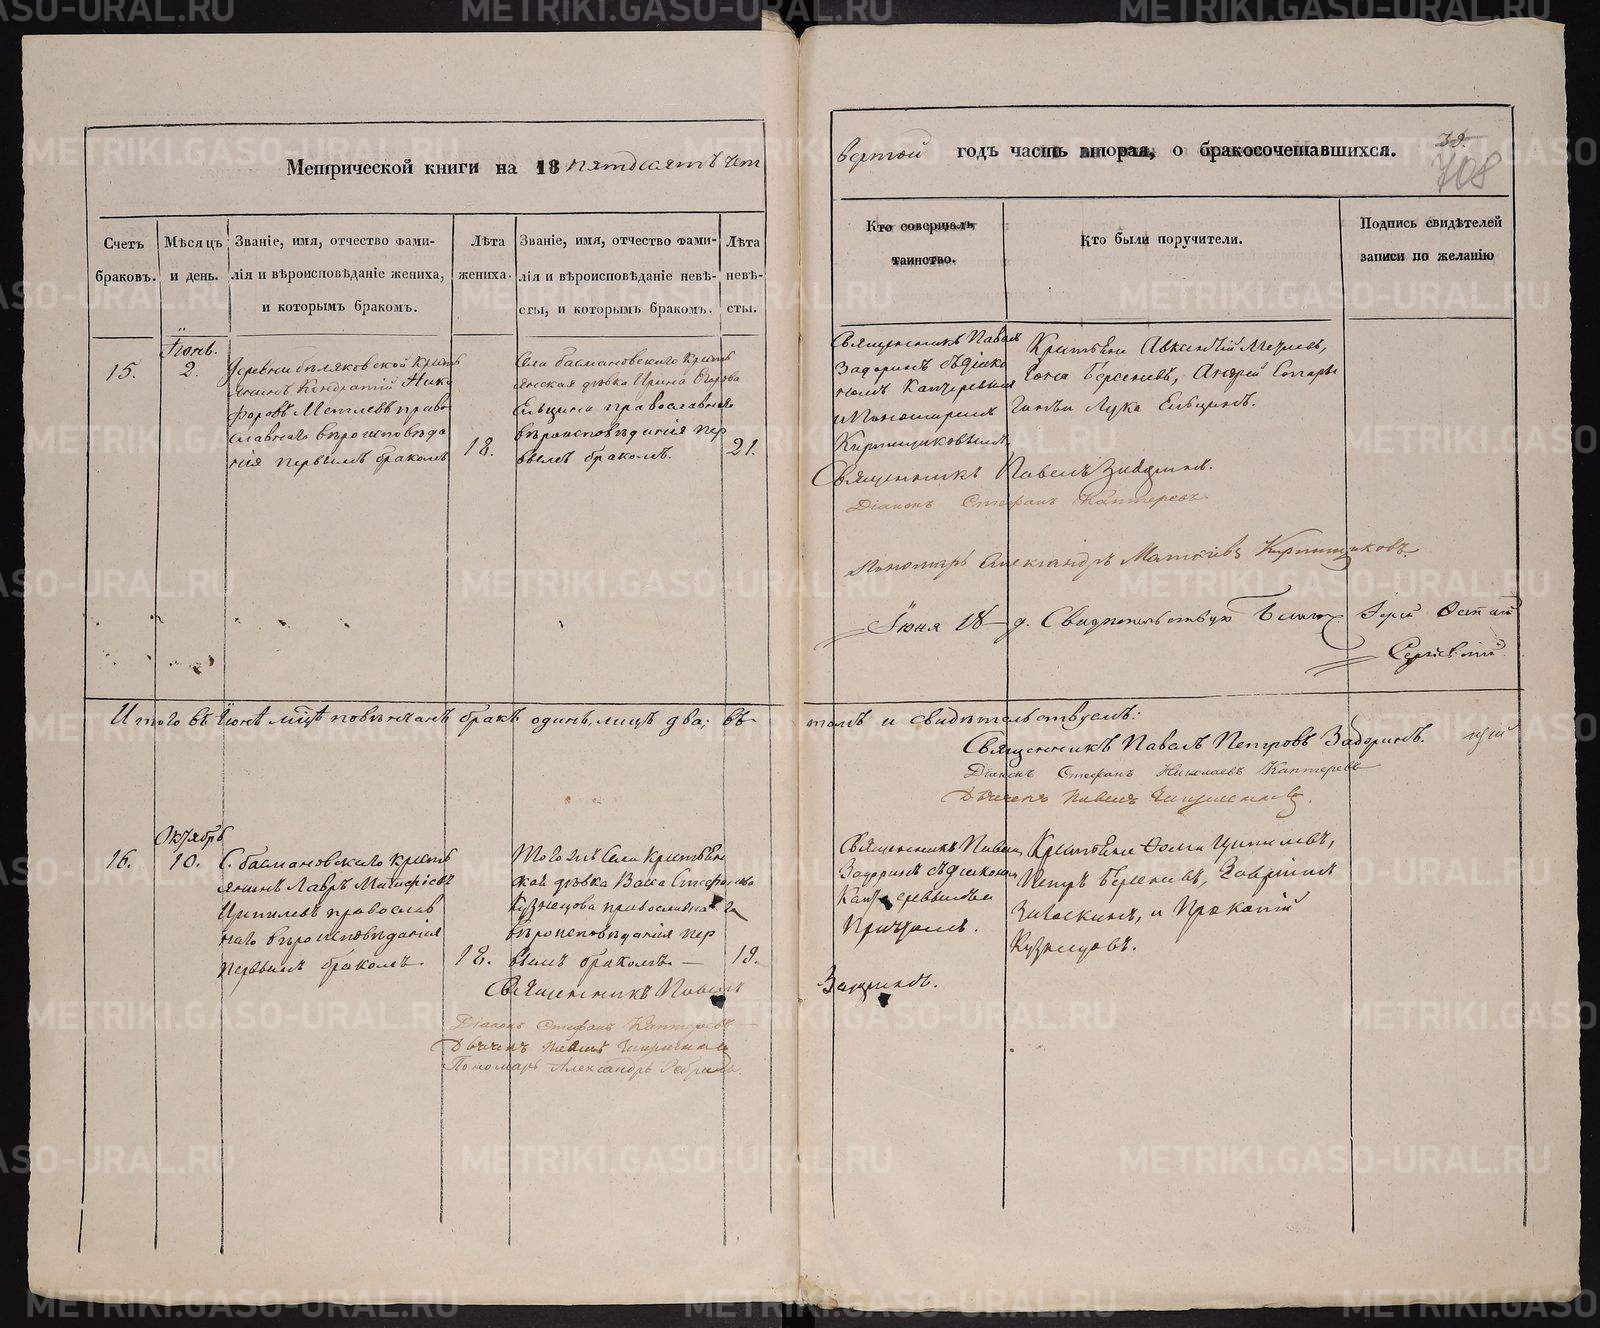 Метрической книги на 18 пятдесятъ чет
вертой годъ часть вторая, о бракосочетавшихся.
39.
708
Счетъ браковъ.
Мѣсяцъ и день.
Званіе, имя, отчество фами-
лія и вѣроисповѣданіе жениха,
и которымъ бракомъ.
Лѣта
жениха.
Званіе, имя, отчество фами-
лія и вѣроисповѣданіе невѣ-
сты, и которымъ бракомъ.
Лѣта
невѣ-
сты.
Кто совершалъ
таинство.
Кто были поручители.
Подпись свидѣтелей
записи по желанію
15.
Іюнь.
2.
Деревни Беляковской Кресть
янинъ Кондратій Ники
форовъ Метлевъ право
славнаго вѣроисповѣда
нія первымъ бракомъ
18.
Села Басмановскаго Кресть
янская дѣвка Ирина Егорова
Ельцина православнаго
вѣроисповѣданія пер
вымъ бракомъ.
21.
Священникъ Павелъ
Задоринъ съ діако
номъ Каптеревымъ
и Пономаремъ
Кирпищиковымъ.
Крестьяне
Іона Берсеневъ, Андрей
Лука Ельцинъ.
Священникъ Павелъ Задоринъ.
Діаконъ Стефанъ Каптеревъ
Пономарь Александръ Матвіевъ Кирпищиковъ.
Іюня 18 д. Свидѣтельствую Іерей
Сергіевскій
Итого въ Іюнѣ м͠цѣ повѣнчанъ бракъ одинъ, лицъ два; въ
томъ и свидѣтельствуемъ:
Священникъ Павелъ Петровъ Задоринъ.
Діаконъ Стефанъ Николаевъ Каптеревъ
Дьячекъ Павелъ
16.
Октябрь
10.
С. Басмановскаго кресть
янинъ Лавръ Матфіевъ
Ципилевъ православ
наго вѣроисповѣданія
первымъ бракомъ
18.
Того же Села Крестьян
ская дѣвка Васса Стефанова
Кузнецова православнаго
вѣроисповѣданія пер
вымъ бракомъ. —
19.
Священникъ Павелъ
Задоринъ съ діакономъ
Каптеревымъ и
Причтомъ.
Крестьяне Ѳома Ципилевъ,
Петръ Берсеневъ, Гавріилъ
и Прокопій
Кузнецовъ.
Священникъ Павелъ
Задоринъ.
Діаконъ Стефанъ Каптеревъ
Дьячекъ Павелъ
Пономарь Александръ
METRIKI.GASO-URAL.RU